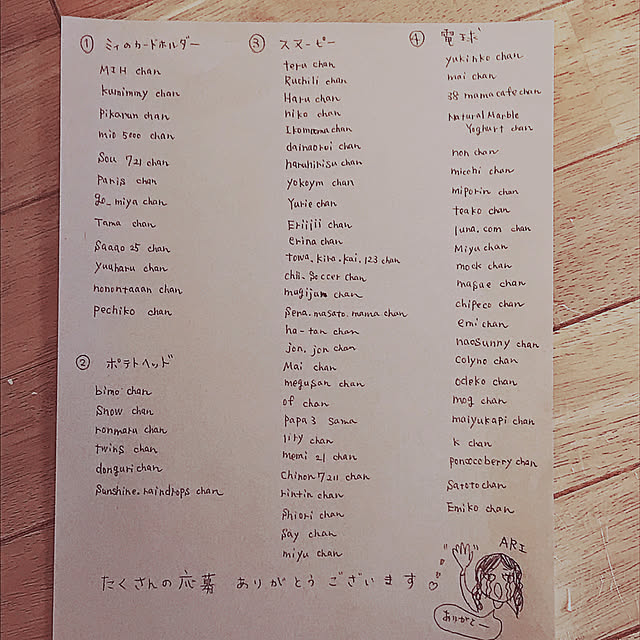 ① ミィのカードホルダー
MIH chan
kumimmy chan
Pikarun chan
mio 5000 chan
Sou 721 chan
Paris chan
go_miya chan
Tama chan
Saago 25 chan
yuuharu chan
nonontaaan chan
pechiko chan
② ポテトヘッド
bimo chan
Snow chan
ronmaru chan
twins chan
donguri chan
Sunshine.raindrops chan
③ スヌーピー
teru chan
Ruchili chan
Haru chan
niko chan
Ikomama chan
dainaoroi chan
haruhirisu chan
yokoym chan
Yurie chan
Eriijii chan
erina chan
towa.kira.kai.123 chan
chii.soccer chan
mugijum chan
Sena.masato.mama chan
ha-tan chan
jon.jon chan
Mai chan
megusan chan
of chan
papa3 sama
liry chan
memi 21 chan
Chinon7211 chan
rintin chan
Shiori chan
Say chan
miyu chan
④ 電球
yukinko chan
mai chan
38 mamacafe chan
Natural Marble
Yoghurt chan
non chan
micchi chan
miporin chan
toako chan
luna.com chan
Miyu chan
mock chan
masae chan
chipeco chan
emi chan
naosunny chan
Colyno chan
odeko chan
mog chan
maiyukapi chan
k chan
ponocoberry chan
Satoto chan
Emiko chan
たくさんの応募 ありがとうございます♡
ARI
ありがとー